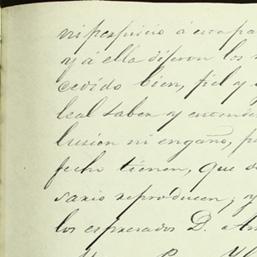 ni perjuicio á
y á ella dijeron los
cedido bien, fiel y
leal saber y
lusion ni engaño,
fecho tienen, que
sario reproducen, y
los espresados D. An